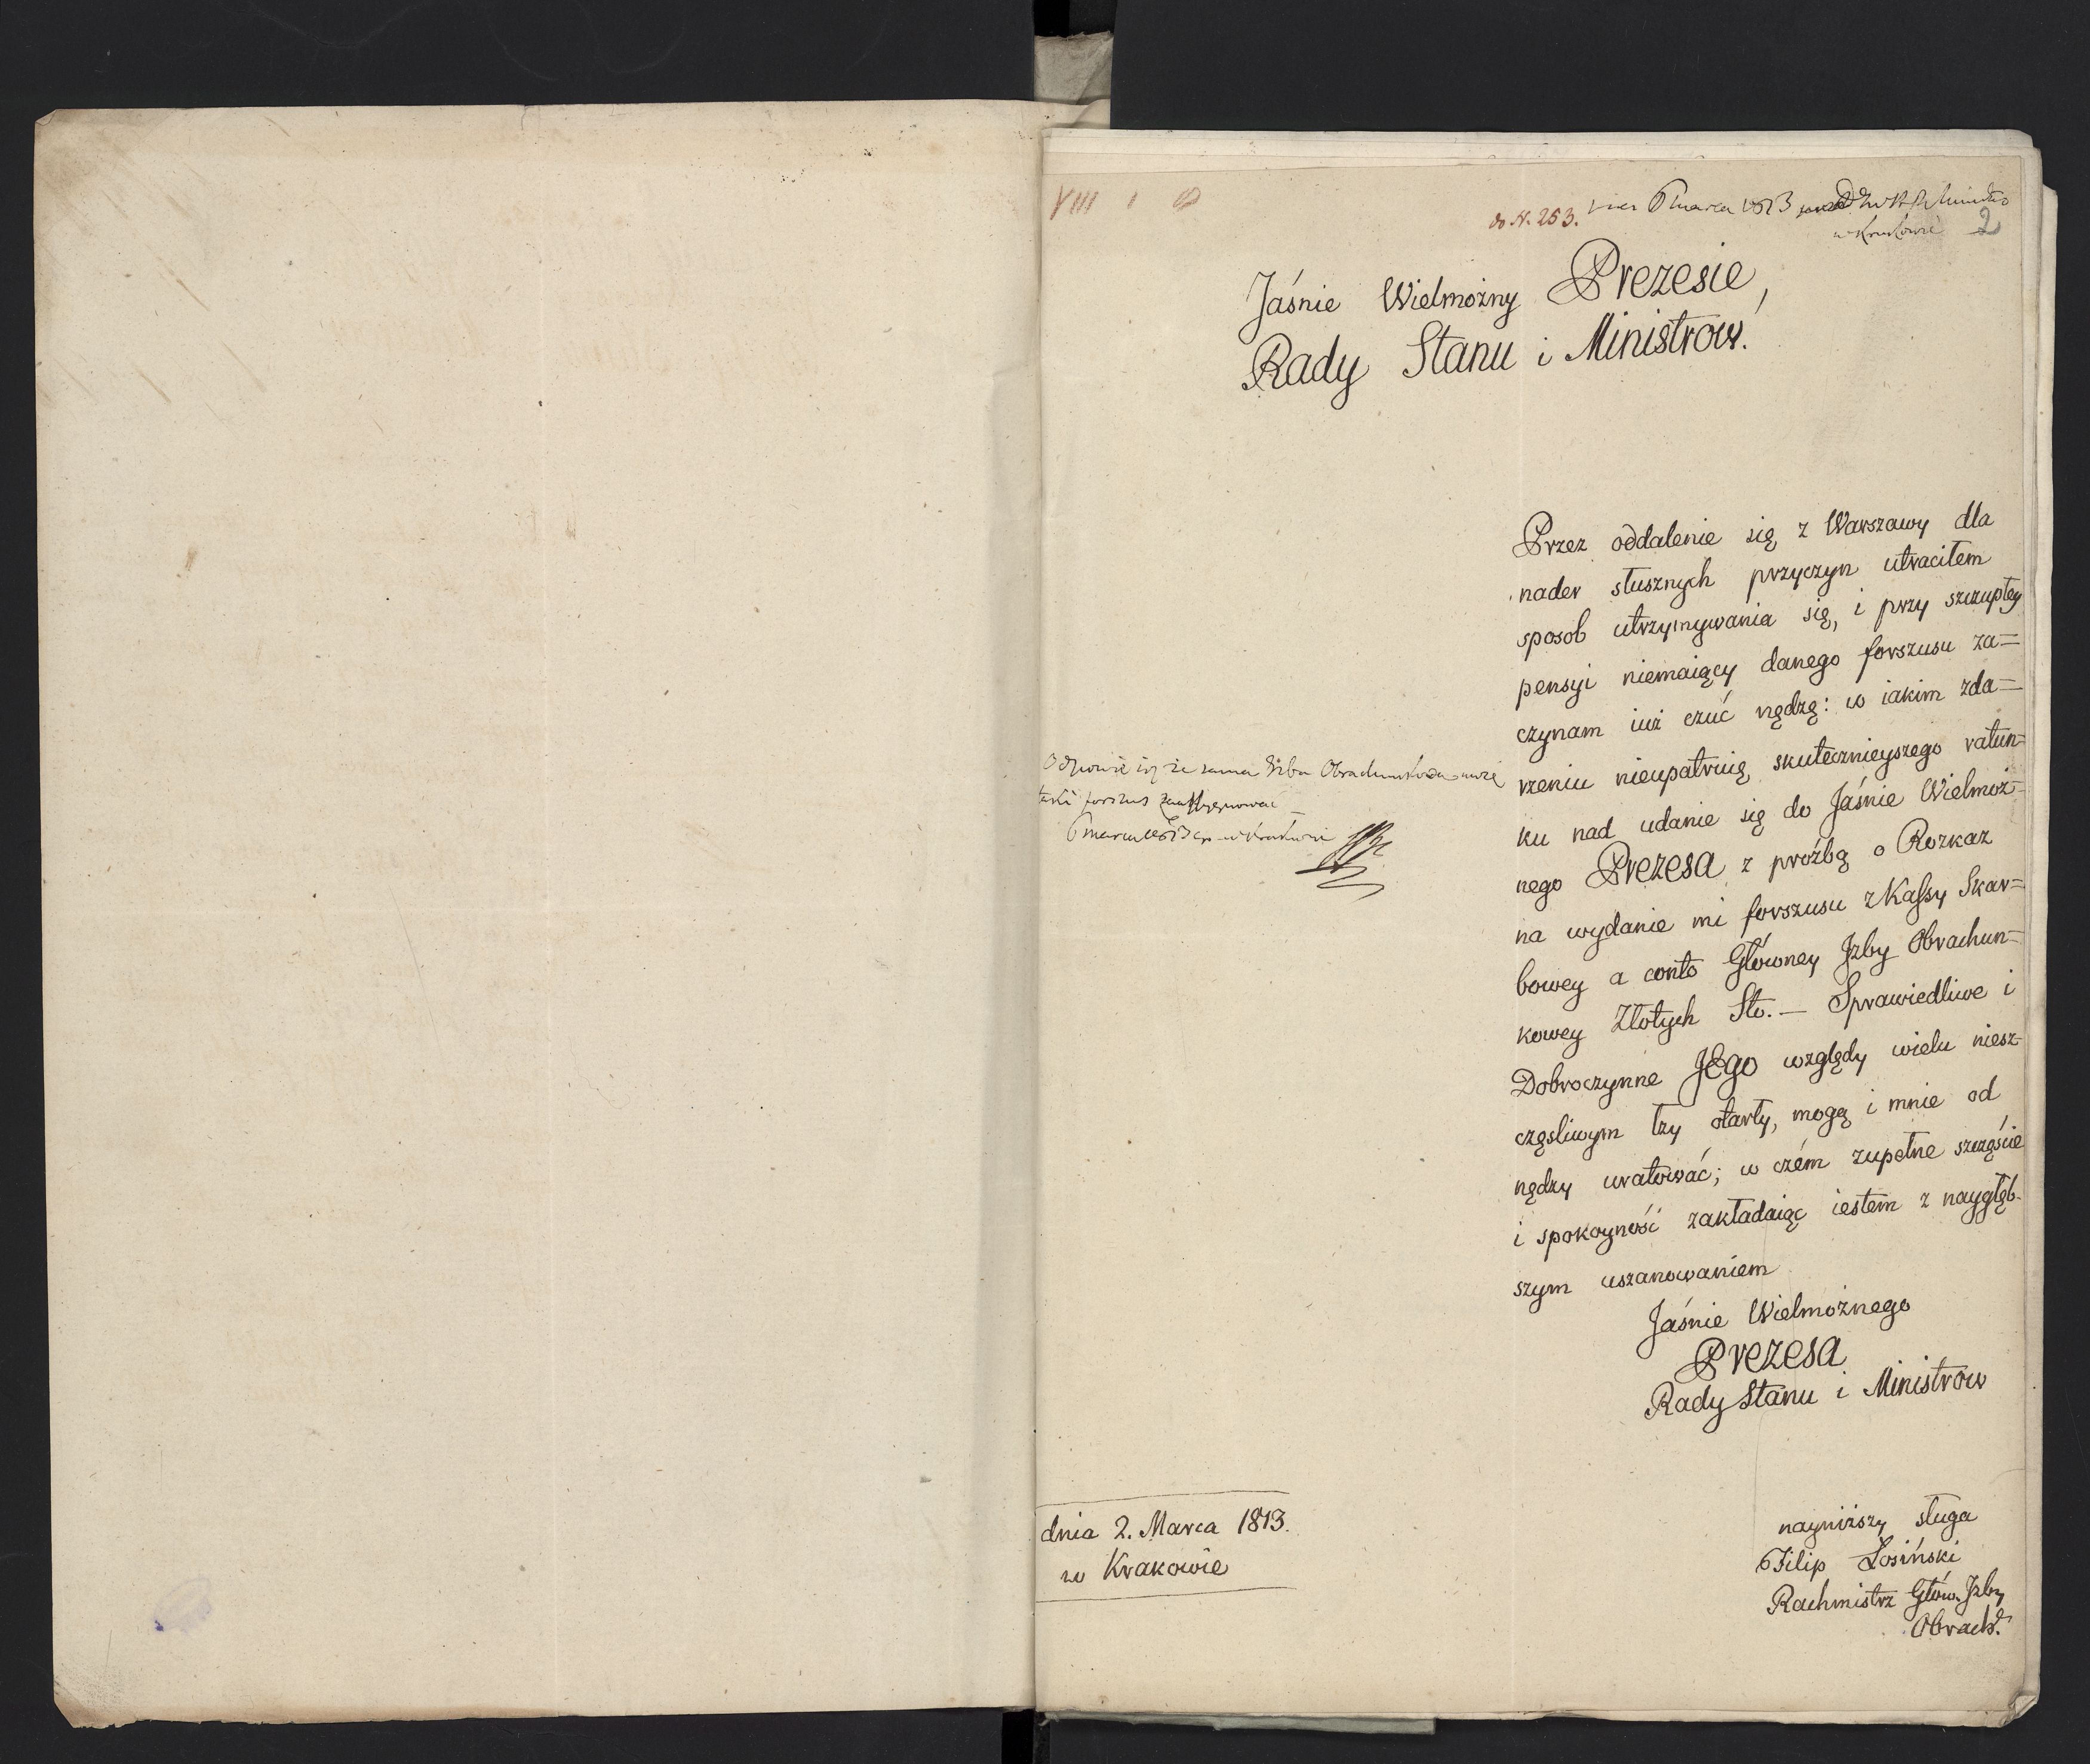 VIII 1
do N. 253.
6 marca 1813
w Krakowie
2
Jaśnie Wielmożny Prezesie,
Rady Stanu i Ministrow.
Przez oddalenie się z Warszawy dla
nader słusznych przyczyn utraciłem
sposob utrzymywania się, i przy szczupłey
pensyi niemaiący danego forszusu za=
czynam iuż czuć nędzę: w iakim zda=
rzeniu nieupatruię skutecznieyszego ratun=
ku nad udanie się do Jaśnie Wielmoż=
nego Prezesa z proźbą o Rozkaz
na wydanie mi forszusu z Kassy Skar=
bowey a conto Główney Jzby Obrachun=
kowey Złotych Sto. — Sprawiedliwe i
Dobroczynne JEgo względy wielu niesz-
częsliwym łzy otarły, mogą i mnie od
nędzy uratować; w czém zupełne szczęście
i spokoyność zakładaiąc iestem z naygłęb-
szym uszanowaniem
Jaśnie Wielmożnego
Prezesa
Rady Stanu i Ministrow
Odpowie się że sama Izba Obrachunkowa może
taki forszus
6 marca 1813 w Krakowie
dnia 2. Marca 1813.
w Krakowie
nayniższy sługa
Filip Łosiński
Rachmistrz Główn. Jzby
Obrach.